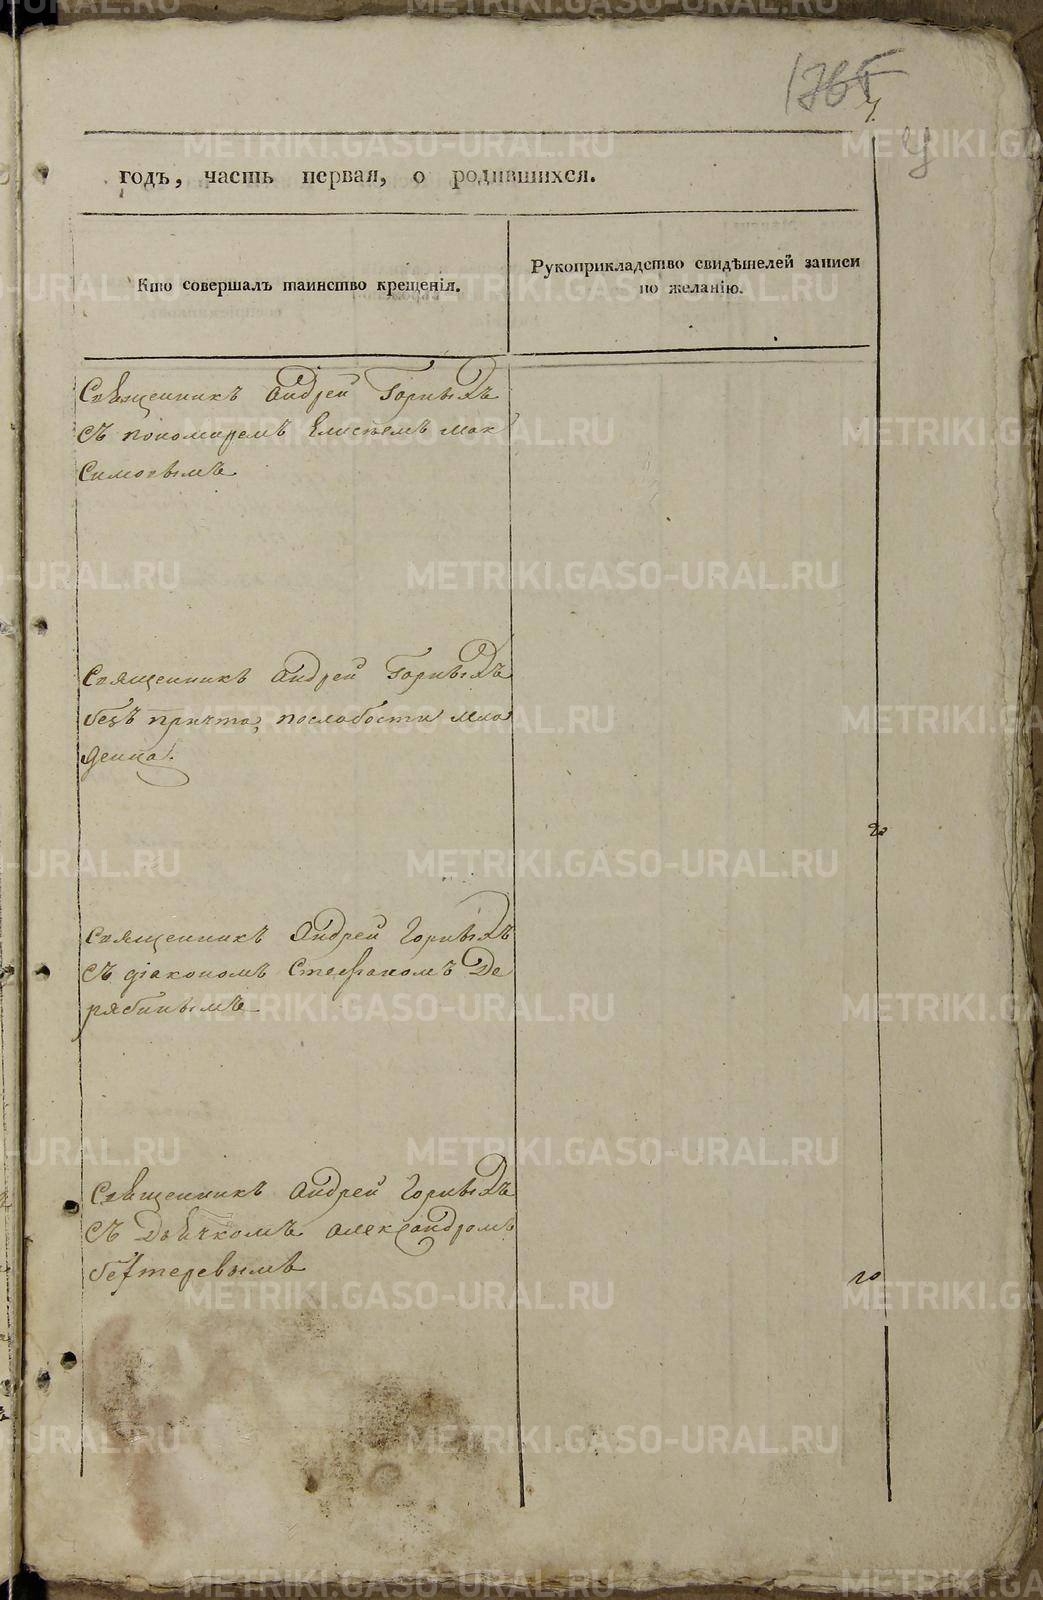 годъ, часть первая, о родившихся.
Кто совершалъ таинство крещенія.
Рукоприкладство свидѣтелей записи
по желанію.
Священникъ Андрей Горныхъ
съ пономаремъ Елисѣемъ Мак
симовымъ
Священникъ Андрей Горныхъ
безъ причта, послабости мла
денца.
Священникъ Андрей Горныхъ
съ діакономъ Стефаномъ Де
рябинымъ
Священникъ Андрей Горныхъ
съ Дьячкомъ Александромъ
бехтеревымъ
METRIKI.GASO-URAL.RU